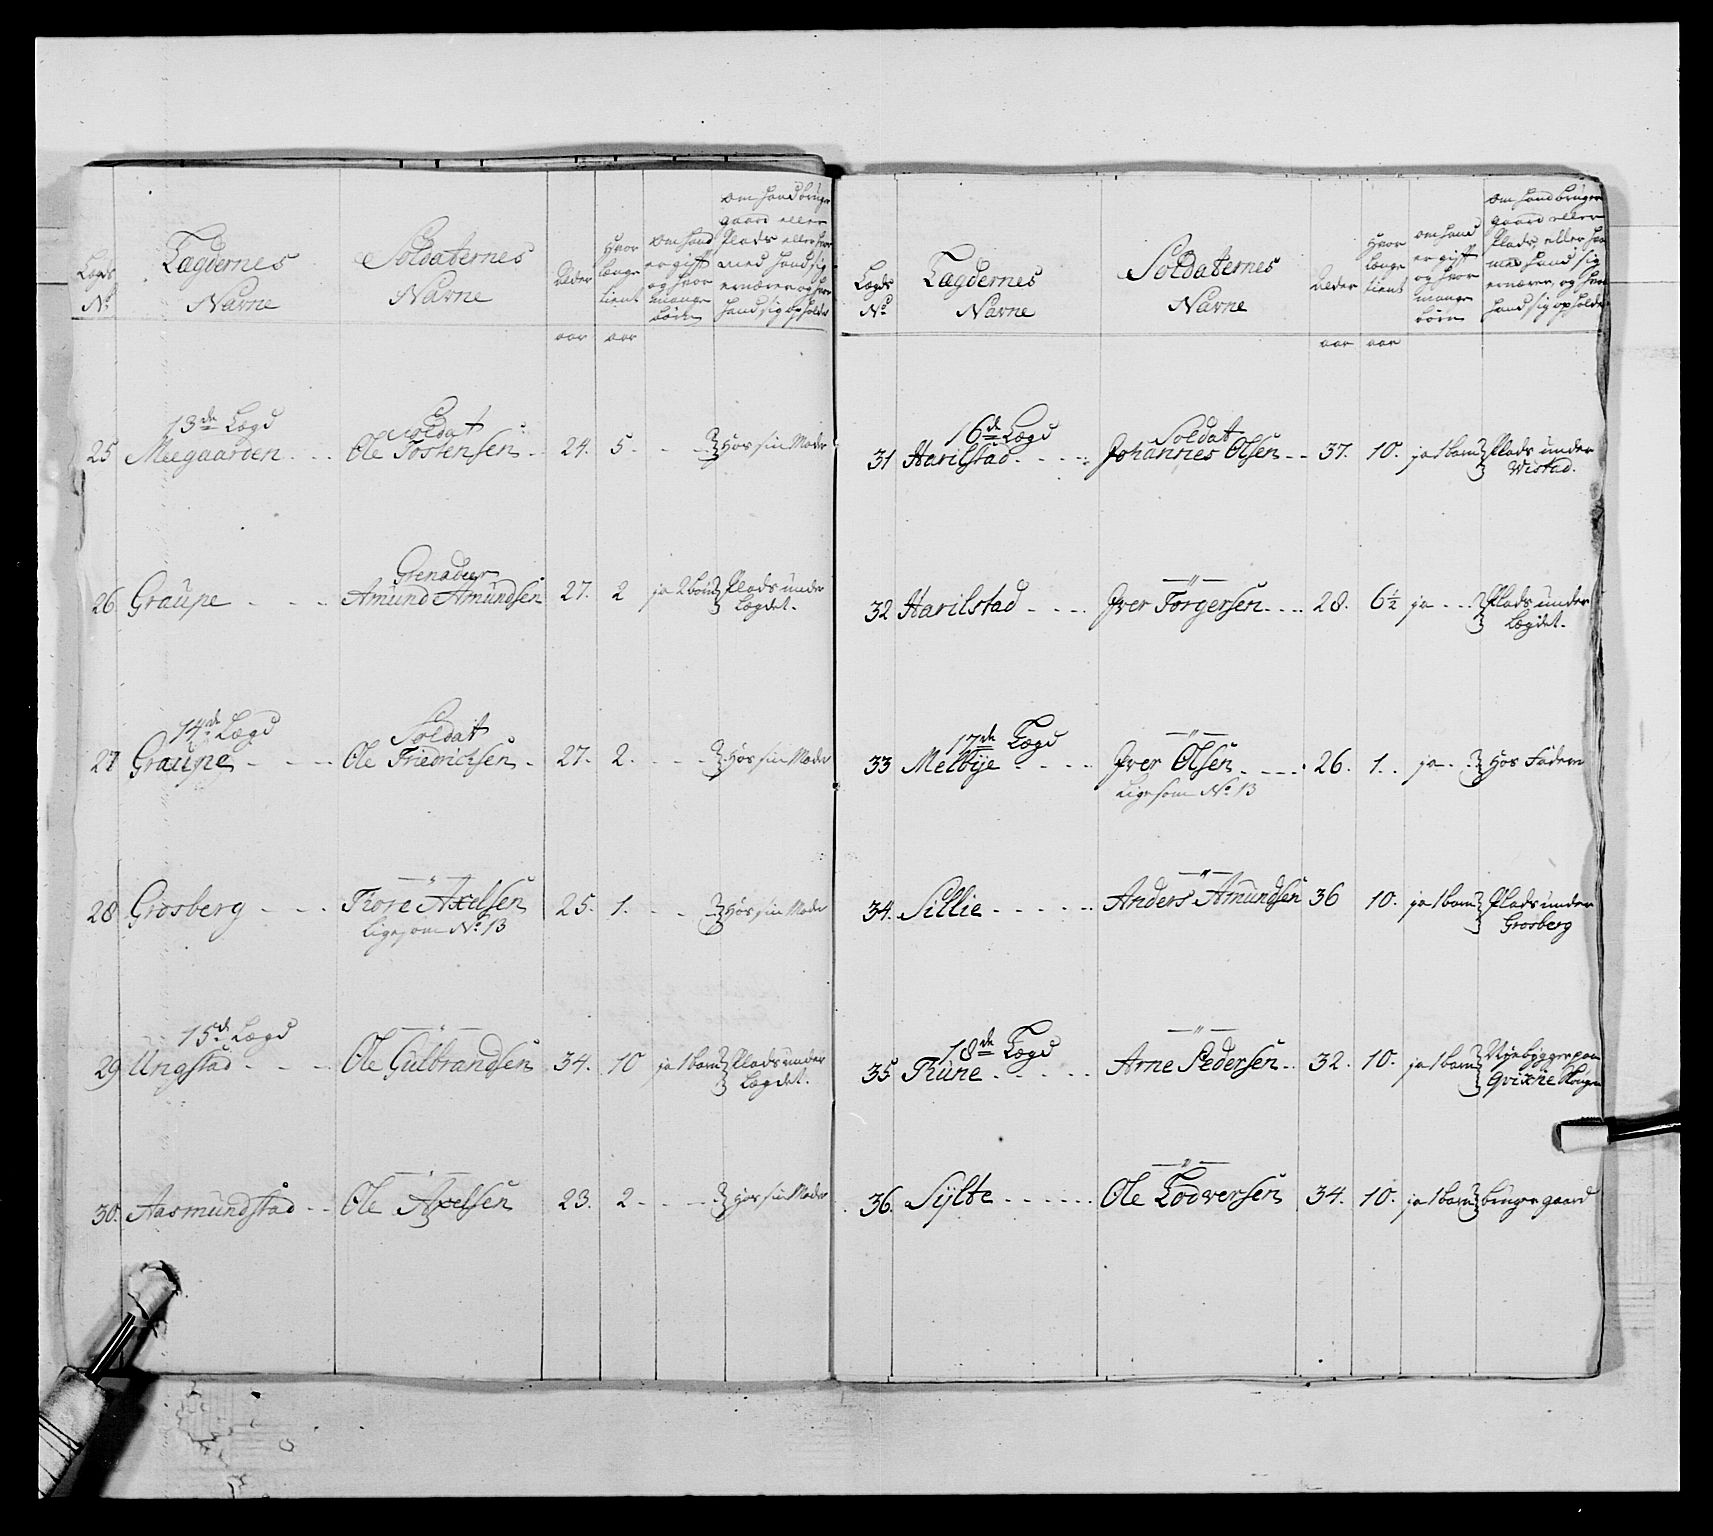 Lægds No.
Lægdernes Navne
Soldaternes Navne
Alder
Hvor længe tient
om hand er gift og hvor mange børn
om hand bruger gaard eller Plads eller hvor med hand sig ernærer og hvor hand sig opholder
aar aar
13de Lægd Soldat
25 Meegaarden Ole Tostensen 24. 5 Hos sin Moder
Grenadeer
26 Graupe Amund Amundsen 27. 2 ja 2 børn Plads under Lægdet.
14de Lægd Soldat
27 Graupe Ole Friedrichsen 27. 2. Hos sin Moder
—"—
28 Grosberg Tiore Axelsen 25. 1. Hos sin Moder
Ligesom No. 13
15de Lægd —"—
29 Ungstad Ole Gulbrandsen 34. 10 ja 1 barn Plads under Lægdet.
—"—
30. Aasmundstad Ole Axelsen 23. 2 Hos sin Moder
Lægds No.
Lægdernes Navne
Soldaternes Navne
Alder
Hvor længe tient
om hand er gift og hvor mange børn
om hand bruger gaard eller Plads, eller hvor med hand sig ernærer, og hvor hand sig opholder
aar aar
16de Lægd Soldat
31 Harilstad Johannes Olsen 37. 10. ja 1 barn Plads under Wistad.
—"—
32 Harilstad Iver Torgersen 28. 6½ ja Plads under Lægdet.
17de Lægd —"—
33 Melbye Iver Olsen 26. 1. ja Hos Faderen
Ligesom No. 13
—"—
34. Sillie Anders Amundsen 36 10. ja 1 barn Plads under Grosberg
18de Lægd —"—
35 Thune Arne Pedersen 32. 10. ja 1 barn Nyebygger paa Qvixne
—"—
36. Sylte Ole Lodversen 34. 10. ja 1 barn bruger gaard